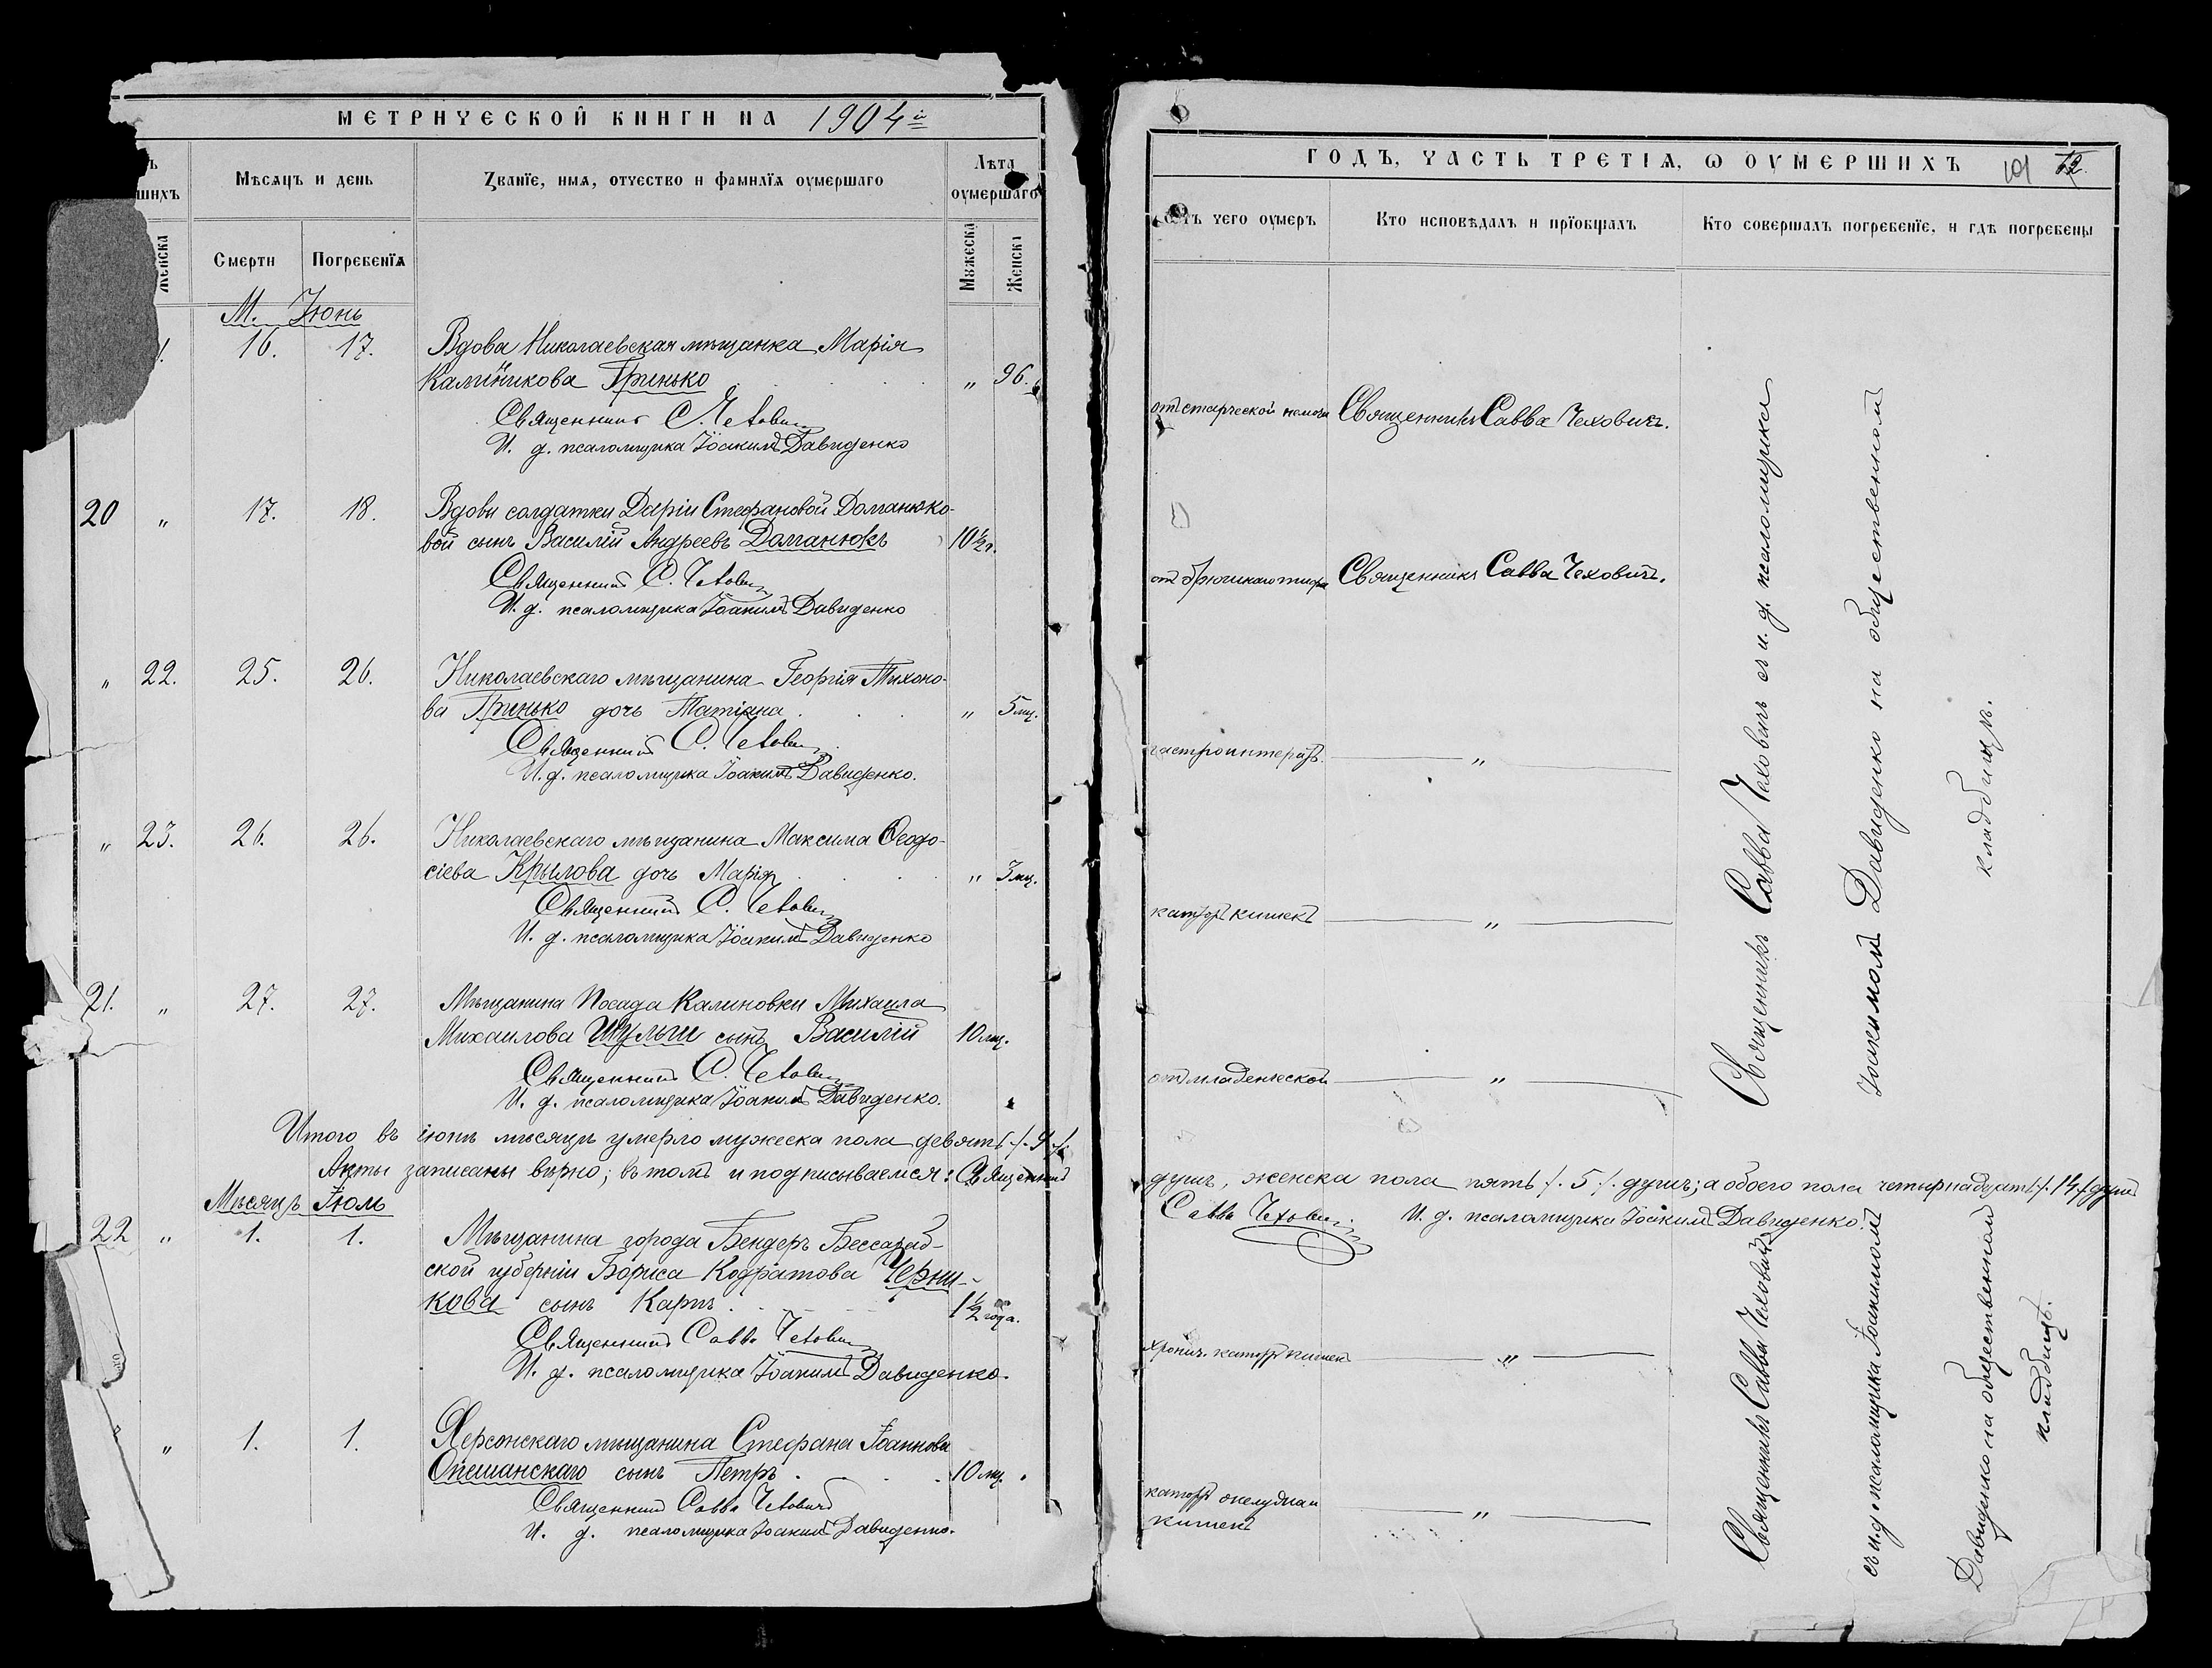 МЕТРИЧЕСКОЙ КНИГИ НА 1904й
Мѣсяцъ и день
Званїе, имя, отчество и фамилїя оумершаго
Лѣта оумершаго
шихъ
Женска
Смерти
Погребенїя
Мужеска
Женска
М. Іюнь
16. 17. Вдова Николаевская мѣщанка Марія
Калинникова Гринько „ 96.
Священникъ С. Чеховичъ
И. д. псаломщика Іоакимъ Давиденко
20 „ 17. 18. Вдовы солдатки Даріи Стефановой Долганюко-
вой сынъ Василій Андреевъ Долганюкъ 10½ л.
Священникъ С. Чеховичъ
И. д. псаломщика Іоакимъ Давиденко
„ 22. 25. 26. Николаевскаго мѣщанина Георгія Тихоно-
ва Гринько дочь Татіана „ 5 мц.
Священникъ С. Чеховичъ
И. д. псаломщика Іоакимъ Давиденко.
„ 23. 26. 26. Николаевскаго мѣщанина Максима Ѳеодо-
сіева Крылова дочь Марія „ 3 мц.
Священникъ С. Чеховичъ
И. д. псаломщика Іоакимъ Давиденко
21. „ 27. 27. Мѣщанина Посада Калиновки Михаила
Михаилова Шульги сынъ Василій 10 мц.
Священникъ С. Чеховичъ
И. д. псаломщика Іоакимъ Давиденко.
Итого въ іюнѣ мѣсяцѣ умерло мужеска пола девять ./. 9 ./.
Акты записаны вѣрно; въ томъ и подписываемся: Священникъ
Мѣсяцъ Іюль
22 „ 1. 1. Мѣщанина города Бендеръ Бессараб-
ской губерніи Бориса Кодратова Черни-
кова сынъ Карпъ 1½ года.
Священникъ Савва Чеховичъ
И. д. псаломщика Іоакимъ Давиденко.
„ 1. 1. Херсонскаго мѣщанина Стефана Іоаннова
Опешанскаго сынъ Петръ 10 мц.
Священникъ Савва Чеховичъ
И. д. псаломщика Іоакимъ Давиденко.
ГОДЪ, ЧАСТЬ ТРЕТІЯ, Ѡ ОУМЕРШИХЪ 101 12.
Ѿтъ чего оумеръ
Кто исповѣдалъ и прїобщалъ
Кто совершалъ погребенїе, и гдѣ погребены
отъ старческой немочи Священникъ Савва Чеховичъ.
отъ брюшнаго тифа Священникъ Савва Чеховичъ.
гастроинтеритъ „
катарръ кишекъ „
отъ младенческой „
Священникъ Савва Чеховичъ съ и. д. псаломщика
Іоакимомъ Давиденко на общественномъ
кладбищѣ.
душъ, женска пола пять ./. 5 ./. душъ; а обоего пола четырнадцать ./. 14 ./. душъ
Савва Чеховичъ. И. д. псаломщика Іоакимъ Давиденко.
хронич. катарръ кишекъ „
катарръ желудка и „
кишекъ
Священникъ Савва Чеховичъ
съ и. д. псаломщика Іоакимомъ
Давиденко на общественномъ
кладбищѣ.